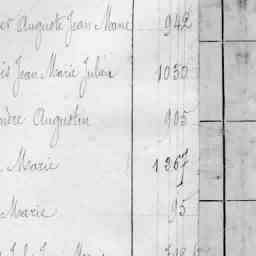 Auguste Jean Marie 942
Jean Marie Julien 1050
Augustin 905
Marie 1367
Marie 95